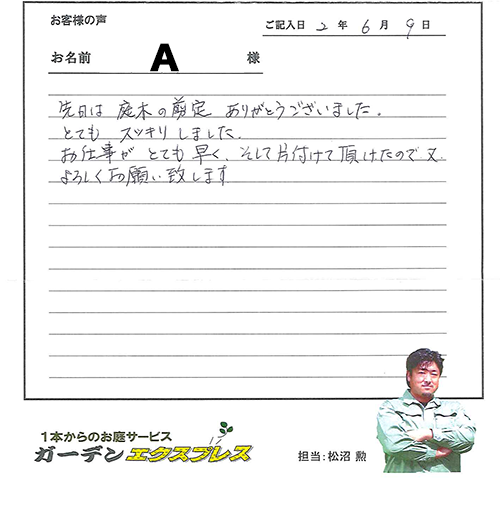 お客様の声
ご記入日 2 年 6 月 9 日
お名前 A 様
先日は 庭木の剪定 ありがとうございました。
とても スッキリ しました.
お仕事が とても 早く、そして片付けて頂けたので 又、
よろしくお願い致します
1本からのお庭サービス
ガーデンエクスプレス
担当:松沼 勲